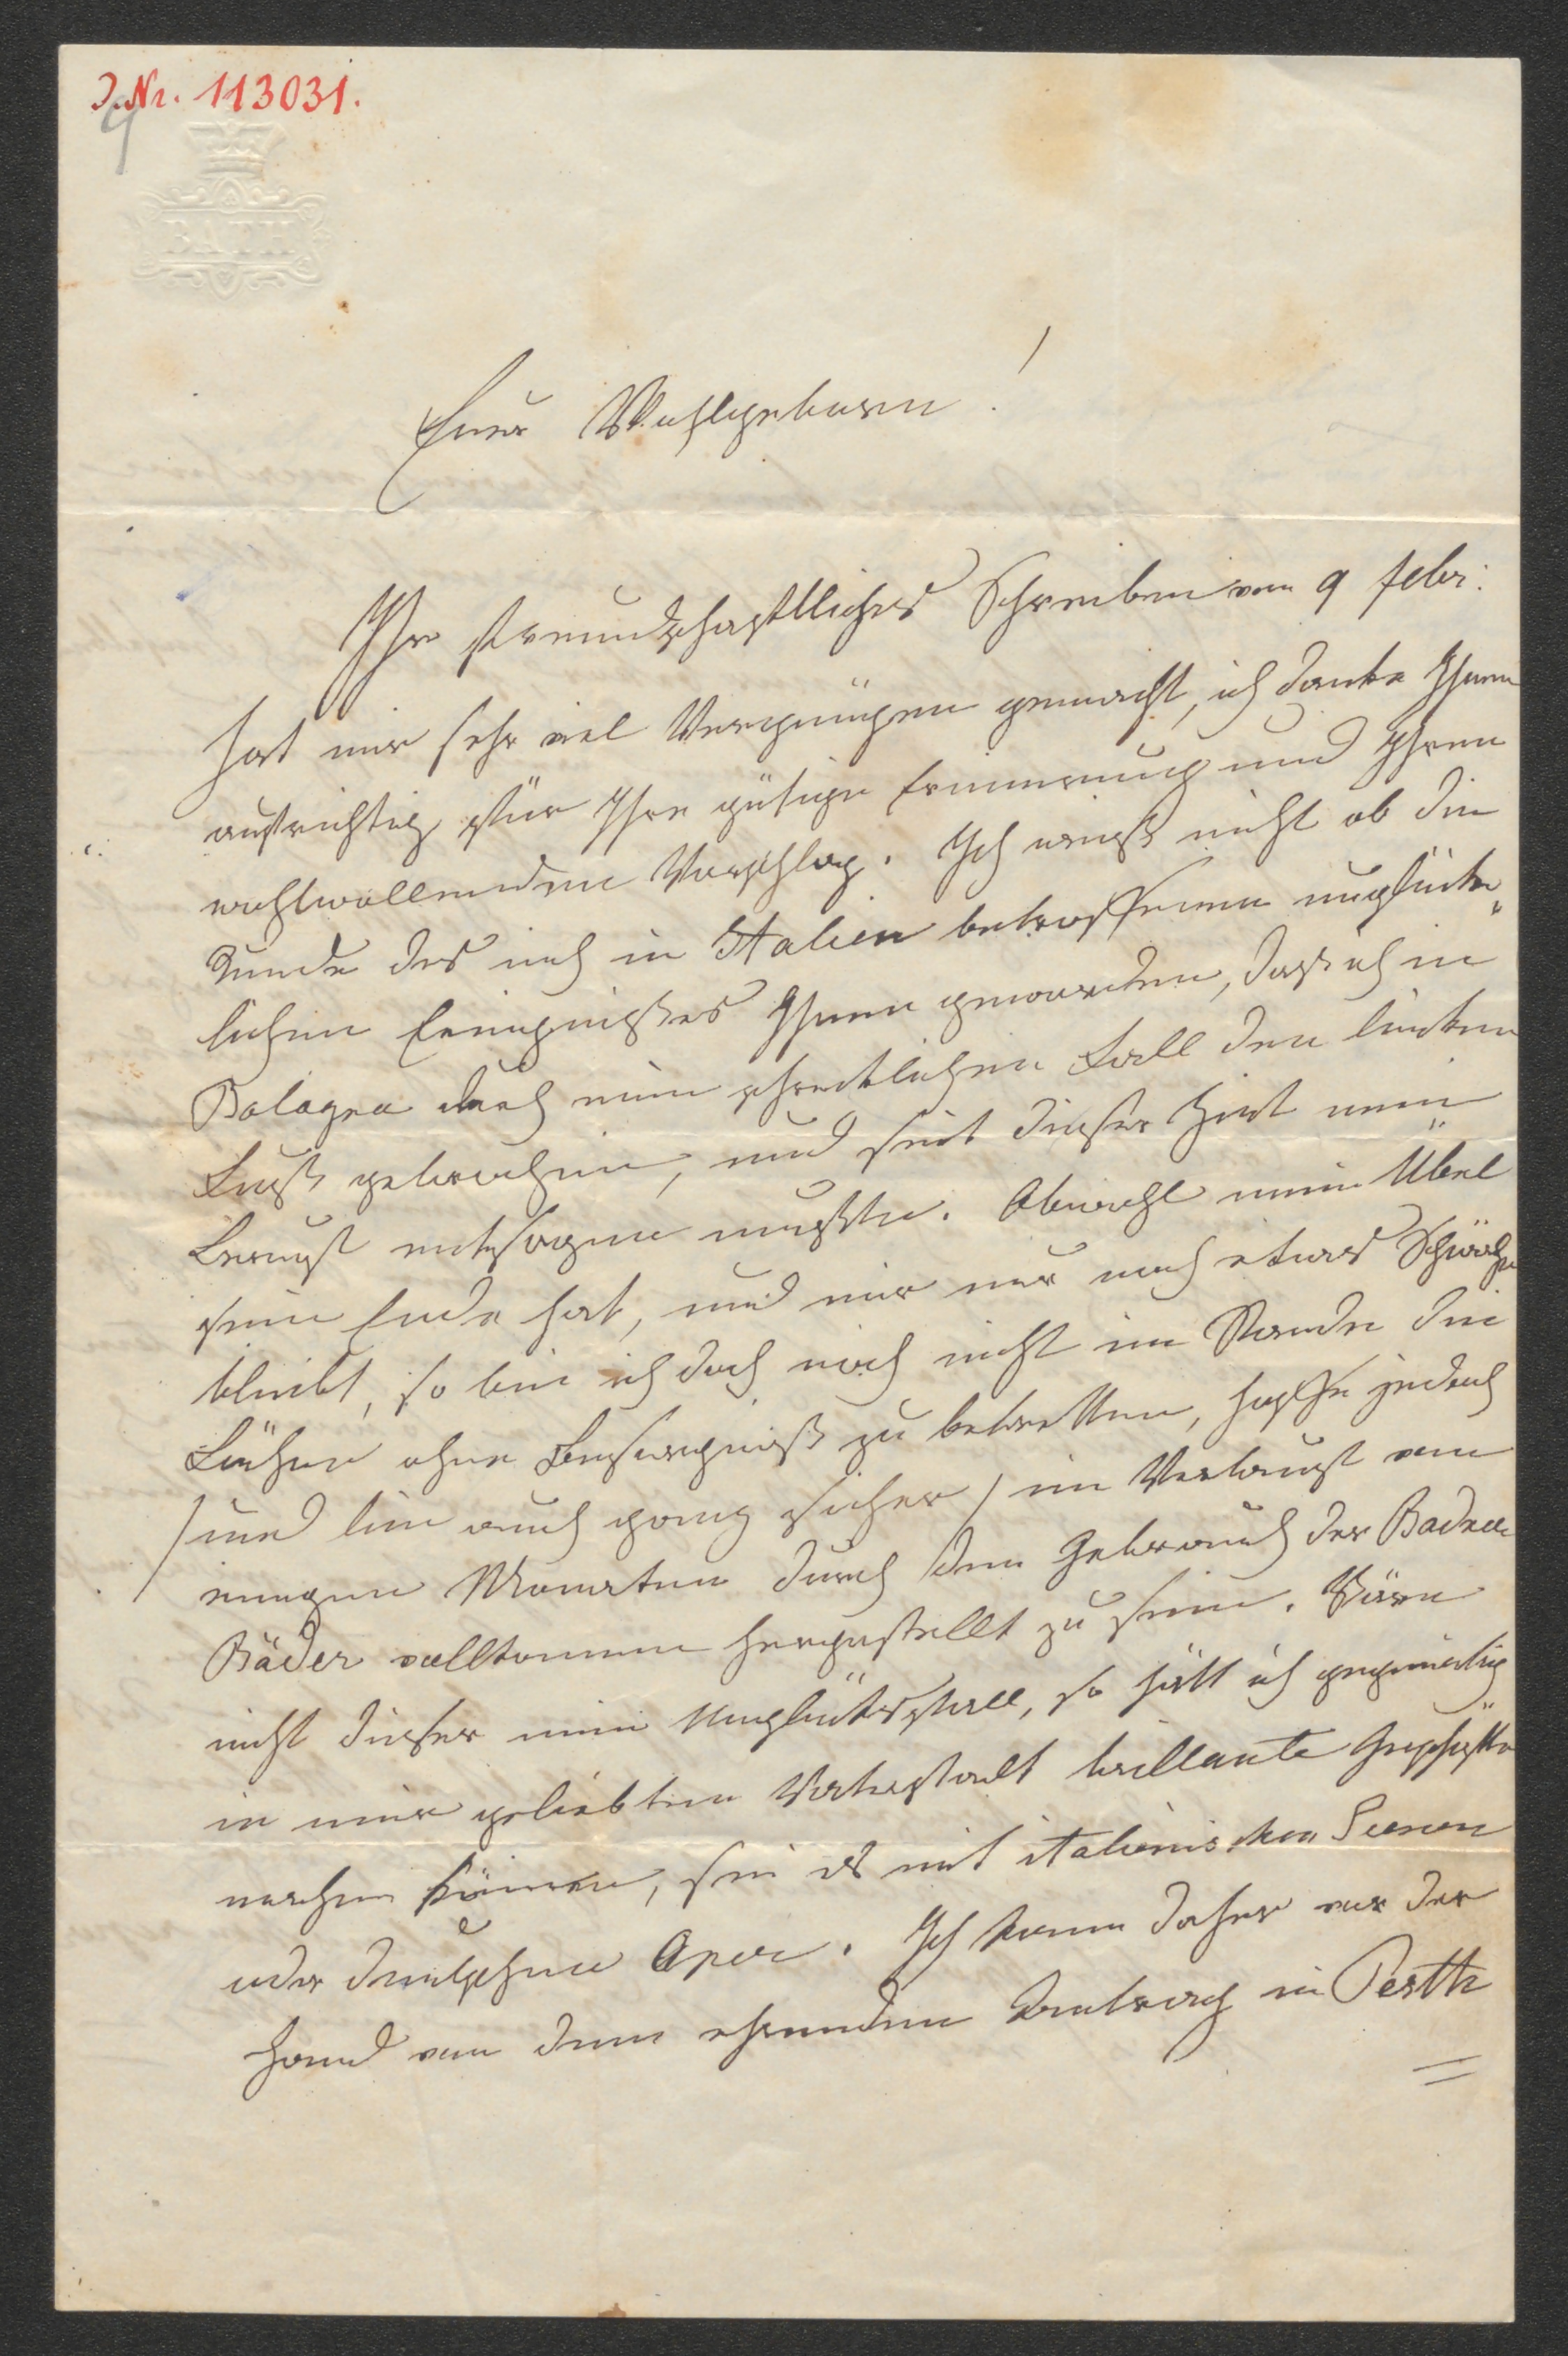 J.Nr. 113031.
9
BATH
Euer Wohlgeboren!
Ihr freundschaftliches Schreiben vom 9 febr:
hat mir sehr viel Vergnügen gemacht, ich danke Ihnen
aufrichtig für Ihre gütige Erinnerung und Ihren
wohlwollenden Vorschlag. Ich weiß nicht ob die
Kunde des mich in Italien betroffenen unglück„
lichen Ereignißes Ihnen geworden, daß ich in
Bologna durch einen schrecklichen Fall den linken
Fuß gebrochen, und seit dieser Zeit mein
Beruf entsagen mußte. Obwohl mein Übel
sein Ende hat, und mir nur noch etwas Schwäche
bleibt, so bin ich doch noch nicht im Stande die
Bühne ohne Besorgniß zu betretten, hoffe jedoch
/ und bin auch ganz sicher / im Verlauf von
einigen Monaten durch den Gebrauch der Badener
Bäder vollkommen hergestellt zu sein. Wäre
nicht dieser mein Unglücksfall, so hätt ich gegenwärtig
in meiner geliebten Vaterstadt brillante Geschäfte
machen können, sei es mit italienischen Season
oder deutschen Oper. Ich kann daher vor der
Hand von dem ehrenden Antrag in Pesth